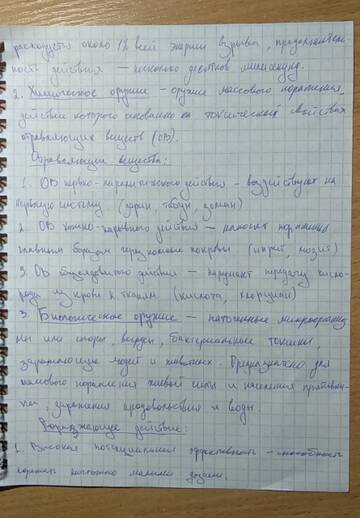 расходуется около 1% всей энергии взрыва, продолжитель
ность действия – несколько десятков миллисекунд.
2. Химическое оружие – оружие массового поражения,
действие которого основано на токсических свойствах
отравляющих веществ (ОВ).
Отравляющие вещества:
1. ОВ нервно-паралитического действия – воздействуют на
нервную систему (зарин, табун, зоман)
2. ОВ кожно-нарывного действия – наносят поражение
главным образом через кожные покровы (иприт, люизит)
3. ОВ общеядовитого действия – нарушают передачу кисло-
рода из крови к тканям (кислота, хлорциан)
3. Биологическое оружие – патогенные микроорганиз
мы или споры, вирусы, бактериальные токсины,
заражающие людей и животных. Предназначено для
массового поражения живой силы и населения противни-
ка, заражения продовольствия и воды
Поражающее действие:
1. Высокая потенциальная эффективность – способность
поражать малыми дозами.